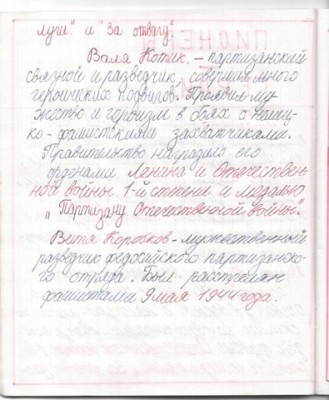 луги" и "За отвагу"
Валя Котик. - партизанский
связной и разведчик, совершил много
героических подвигов. Проявил му-
жество и героизм в боях с немец-
ко-фашисткими захватчиками.
Правительство наградило его
орденами Ленина и Отечествен
ной войны 1-й степени и медалью
"Партизану Отечественной войны".
Витя Коробков - мужественный
разведчик федосийского партизанско-
го отряда. Был расстрелян
фашистами 9 мая 1944 года.